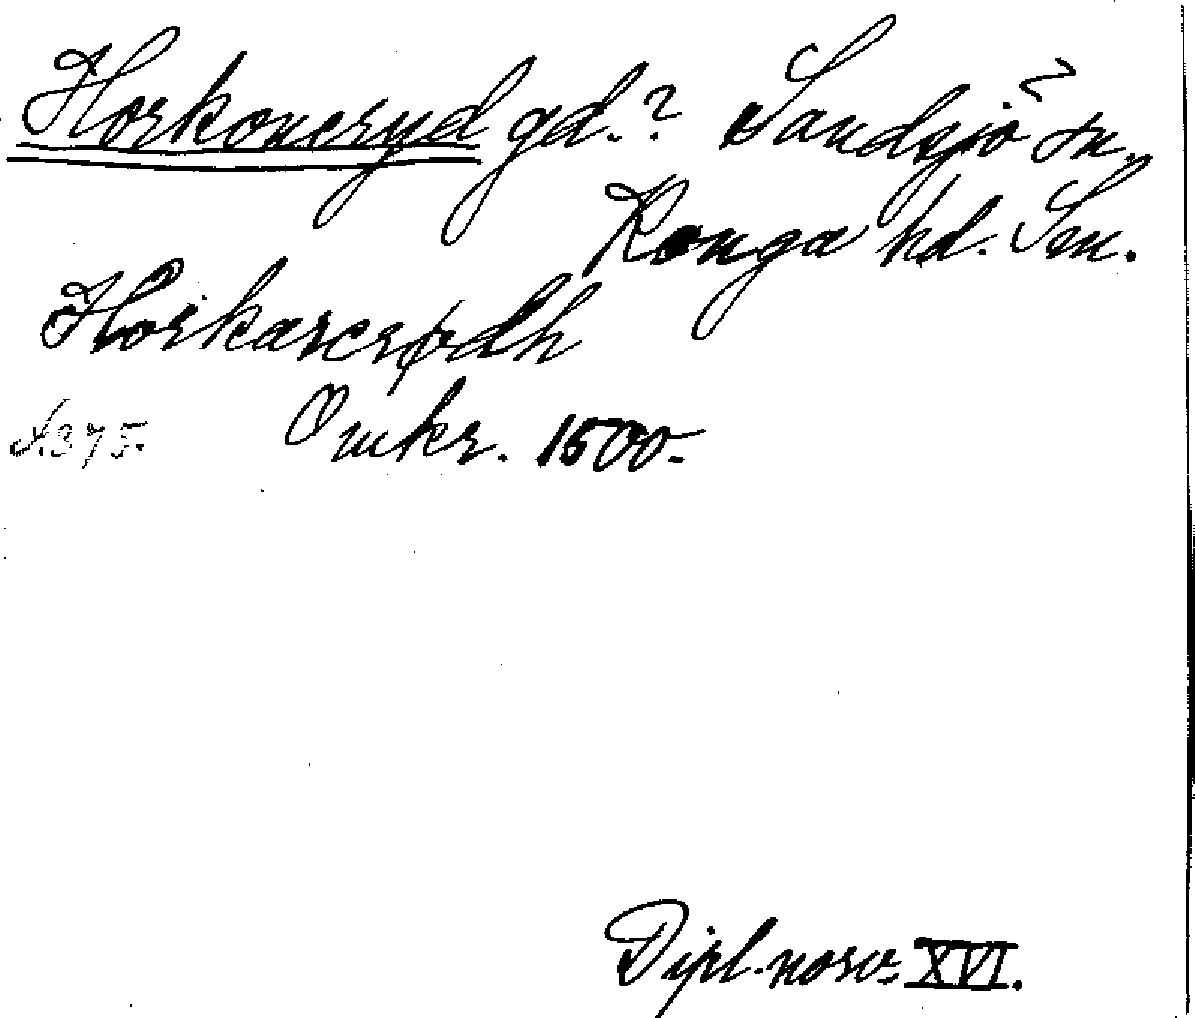 Horkoneryd gd.? Sandsjö sn.,
Konga hd. Sm.
Horkarerødh
s. 375. Omkr. 1500.
Dipl. norv. XVI.